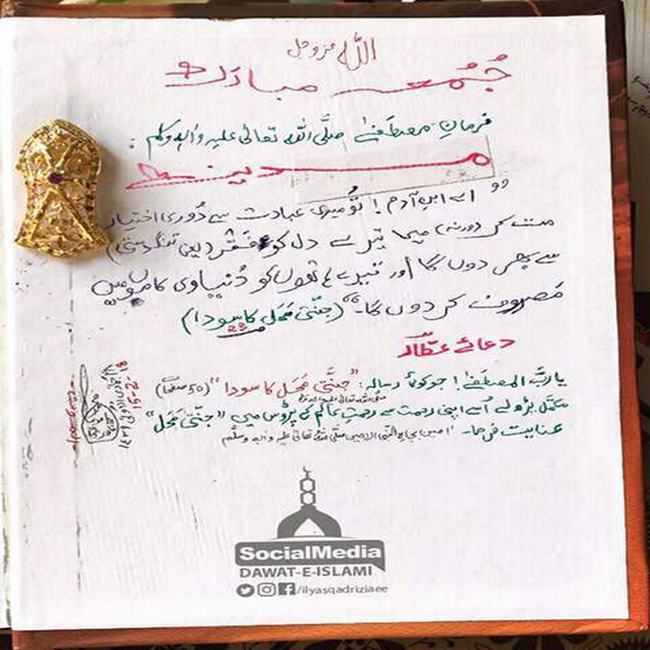 اللہ عزوجل
جُمُعہ مبارک
فرمانِ مصطفےٰ صلَّی اللہ تعالیٰ علیہ واٰلہٖ وسلم :
مدینہ
"اے ابنِ آدم! تُو میری عبادت سے دُوری اختیار
مت کر (ورنہ) میں تیرے دل کو فَقْر (یعنی تنگدستی)
سے بھر دوں گا اور تیرے ہاتھوں کو دُنیاوی کاموں میں
مَصروف کر دوں گا۔" (جنّتی مَحَل کا سودا)
دعائے عطّار
یا ربَّ المصطَفےٰ! جو کوئی رسالہ: "جنّتی مَحَل کا سودا" (50 صفحات)
مکمّل پڑھ لے اُسے اپنی رحمت سے رحمتِ عالم کی پڑوس میں "جنّتی مَحَل"
صلی اللہ علیہ واٰلہٖ وسلم
عنایت فرما۔ اٰمین بجاہِ النبی الامین صلَّی اللہ تعالیٰ علیہ واٰلہٖ وسلَّم
15-2-18
SocialMedia
DAWAT-E-ISLAMI
/ilyasqadriziaee